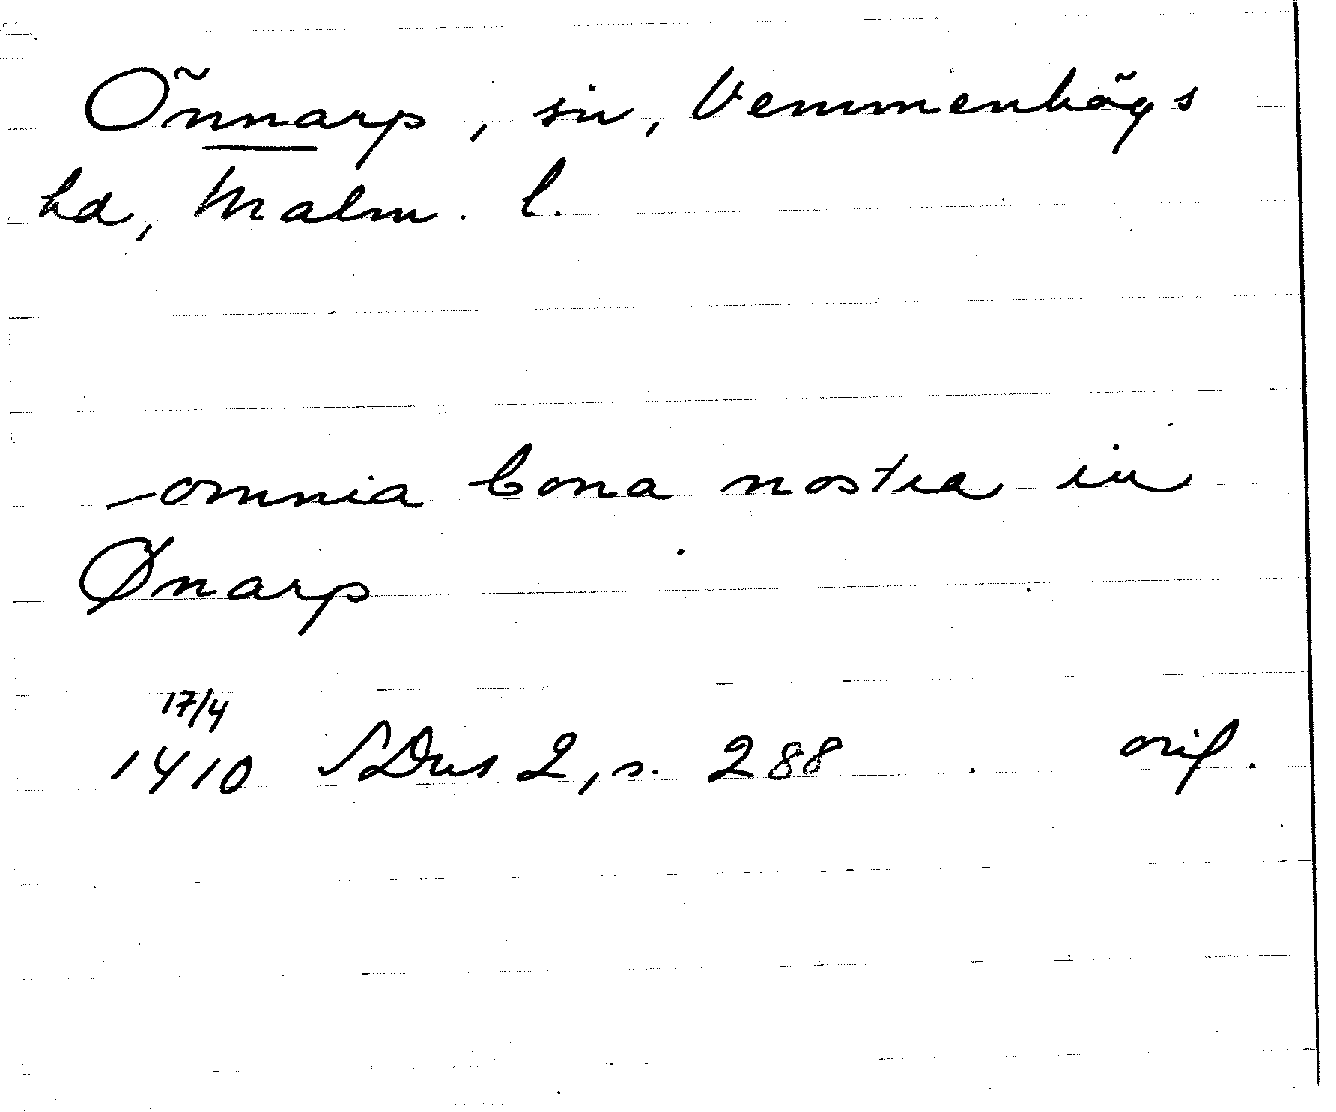 Önnarp, sn, Vemmenhögs
hd, Malm. l.
omnia bona nostra in
Ønarp
17/4
1410 SDns 2, s. 288 . orig.